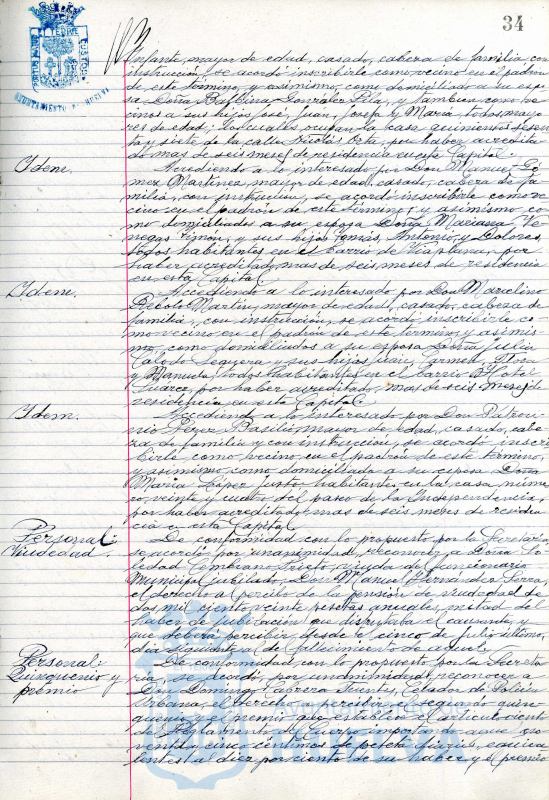 34
AYUNTAMIENTO DE HUELVA
Infante, mayor de edad, casado, cabeza de familia con
instrucción, se acordó inscribirle como vecino en el padrón
de este término, y asimismo, como domiciliado a su espo-
sa Doña González y tambien como ve-
cinos a sus hijos José, Juan, Josefa y María, todos mayo-
res de edad, los cuales ocupan la casa quinientos sesen-
ta y siete de la calle Nicolás Orta, por haber acredita-
do mas de seis meses de residencia en esta Capital.
Idem.
Accediendo a lo interesado por Don Manuel Gó-
mez Martínez, mayor de edad, casado, cabeza de fa-
milia, con instrucción, se acordó inscribirle como ve-
cino en el padrón de este término, y asimismo co-
mo domiciliados a su esposa Doña Mariana Ve-
negas Simón, y sus hijos Tomás, Antonio y Dolores,
todos habitantes en el barrio de Viaplana, por
haber acreditado mas de seis meses de residencia
en esta Capital.
Idem.
Accediendo a lo interesado por Don Marcelino
Martín, mayor de edad, casado, cabeza de
familia, con instrucción, se acordó inscribirle co-
mo vecino en el padrón de este término, y asimis-
mo, como domiciliados a su esposa Doña Julia
y sus hijos Juan, Carmen,
y Manuela, todos habitantes en el Barrio
Suárez, por haber acreditado mas de seis meses de
residencia en esta Capital.
Idem.
Accediendo a lo interesado por Don Petro-
nio Pérez Basilio, mayor de edad, casado, cabe-
za de familia y con instrucción, se acordó inscri-
birle como vecino, en el padrón de este término,
y asimismo como domiciliada a su esposa Doña
María López Justo, habitante en la casa núme-
ro veinte y cuatro del paseo de la Independencia,
por haber acreditado mas de seis meses de residen-
cia en esta Capital.
Personal:
Viudedad.
De conformidad con lo propuesto por la Secretaría,
se acordó por unanimidad, reconocer a Doña So-
ledad Prieto, viuda del funcionario
Municipal jubilado, Don Manuel Hernández
el derecho a percibo de la pensión de viudedad de
dos mil ciento veinte pesetas anuales, mitad del
haber de jubilación que disfrutaba el causante, y
que deberá percibir desde el cinco de Julio último,
día siguiente de fallecimiento de aquel.
Personal:
Quinquenio y
premio
De conformidad con lo propuesto por la Secreta-
ría, se acordó, por unanimidad, reconocer a
Don Domingo Cabrera Fuentes, Celador de Policía
Urbana, el derecho a percibir el segundo quin-
quenio y el premio que establece el artículo ciento
de Reglamento del Cuerpo, importando aquel no-
venta y cinco céntimos de peseta diarios, equiva-
lentes al diez por ciento de su haber y el premio
Ayuntamiento de
HUELVA